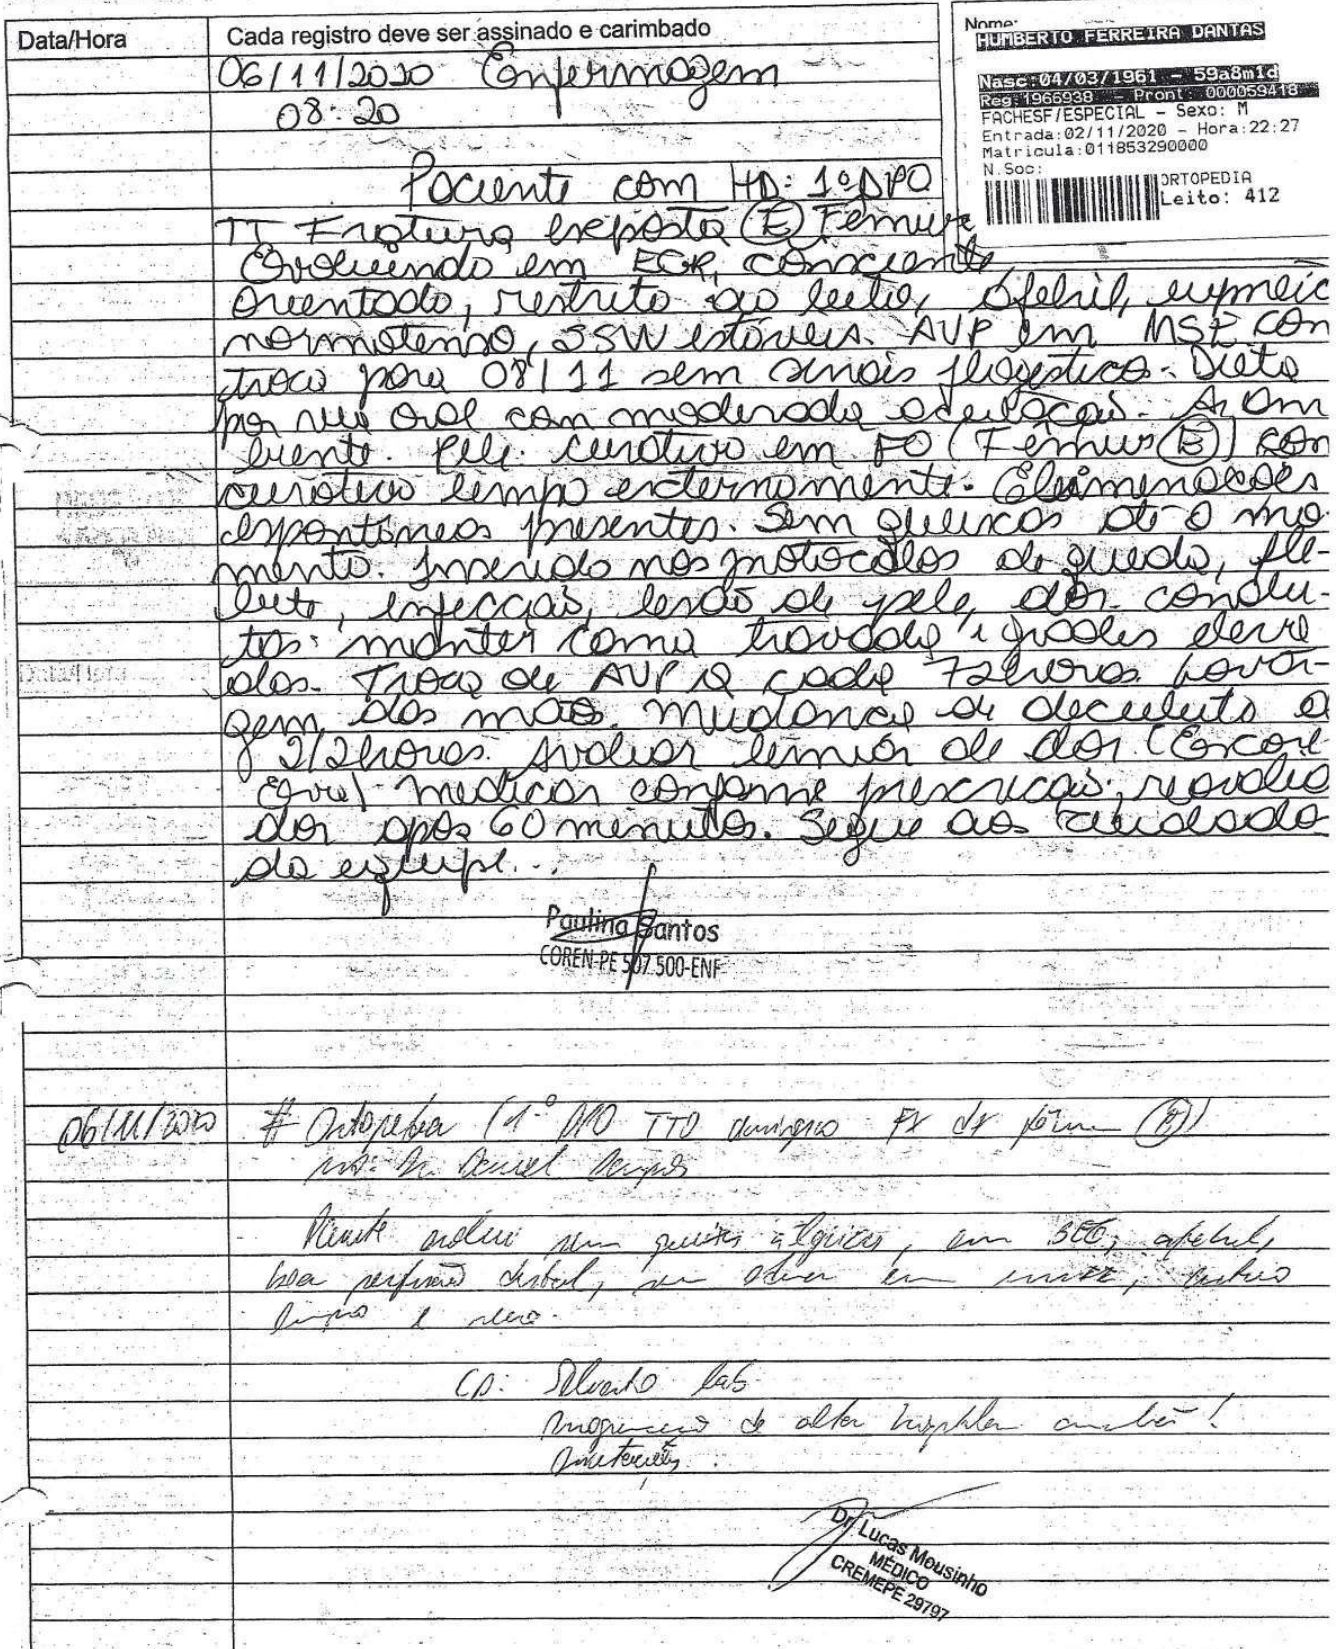 Data/Hora
Cada registro deve ser assinado e carimbado
Nome:
HUMBERTO FERREIRA DANTAS
Nasc:04/03/1961 - 59a8m1d
Reg:1966938 - Pront: 000059418
FACHESF/ESPECIAL - Sexo: M
Entrada:02/11/2020 - Hora:22:27
Matricula:011853290000
N.Soc:
ORTOPEDIA
Leito: 412
06/11/2020 Enfermagem
08:20
Paciente com HD: 1º DPO
TT Fratura exposta (E) Fêmur
Evoluindo em EGR, consciente
orientado, restrito ao leito, afebril, eupneic
normotenso, SSVV estáveis. AVP em MSE con
troca para 08/11 sem sinais flogistico. Dieta
por via oral com moderada aceitação. Ar am
biente. Pele: curativo em FO (Fêmur (E)) con
curativo limpo externamente. Eliminações
espontâneas presentes. Sem queixas até o mo
mento. Inserido nos protocolos de queda, fle-
bite, infecção, lesão de pele, dor. condu-
tas: manter cama travada e grades eleva
das. Troca de AVP a cada 72horas. Lava-
gem das mãos. Mudança de decubito a
2/2horas. Avaliar limiar de dor (Escore
Eva) medicar conforme prescrição; reavalia
dor após 60 minutos. Segue aos cuidado
da equipe...
Paulina Santos
COREN-PE 507.500-ENF
06/11/2020 # Ortopedia (1º DPO TTO cirúrgico Fx de fêmur (E))
Dr. Daniel
Paciente evolui sem queixas álgicas, em BEG, afebril,
boa perfusão distal, curativo
limpo e seco.
CD: Solicito lab
Programação de alta hospitalar amanhã!
Dr. Lucas Mousinho
MÉDICO
CREMEPE 29797